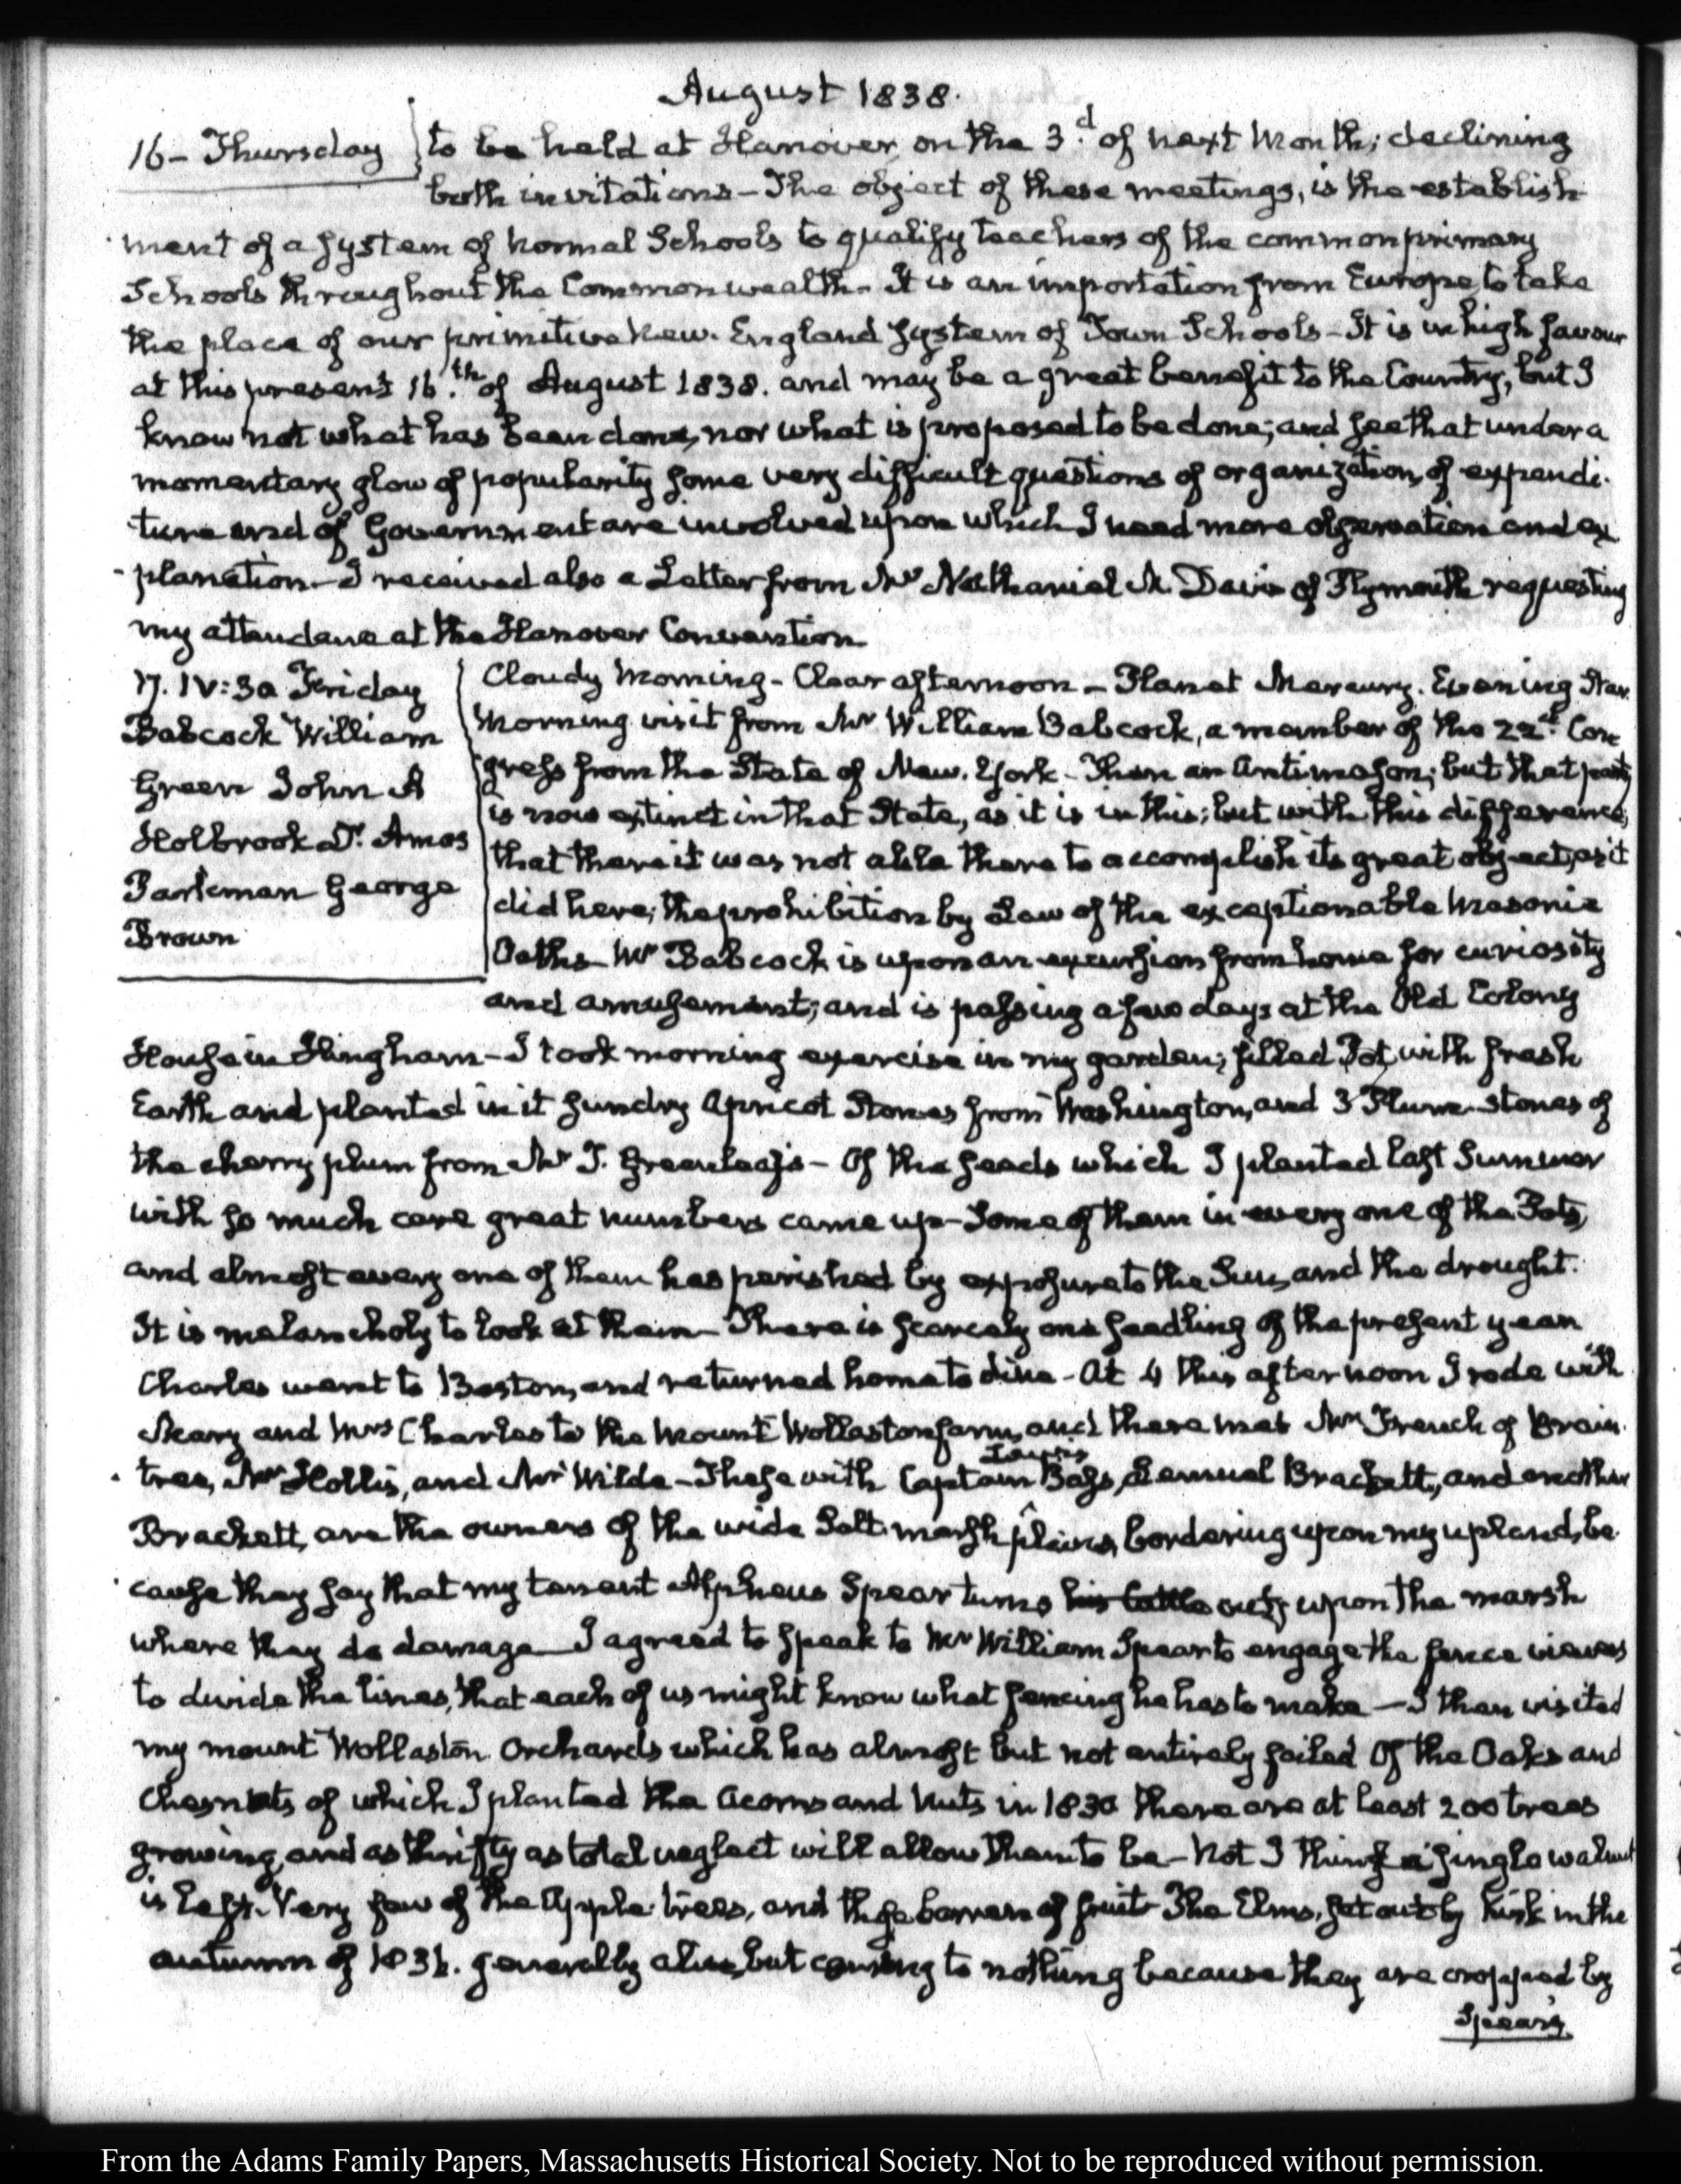 August 1838.
16 - Thursday
to be held at Hanover on the 3.d of next Month; declining
both invitations - The object of these meetings, is the establish
ment of a system of Normal Schools to qualify teachers of the common primary
Schools throughout the Commonwealth - It is an importation from Europe, to take
the place of our primitive New-England system of Town Schools - It is in high favour
at this present 16.th of August 1838. and may be a great benefit to the Country, but I
know not what has been done, nor what is proposed to be done; and see that under a
momentary glow of popularity some very difficult questions of organization, of expendi-
ture and of Government are involved upon which I need more observation and ex
planation - I received also a Letter from Mr Nathaniel M. Davis of Plymouth requesting
my attendance at the Hanover Convention
17. IV:30 Friday
Babcock William
Green John A
Holbrook Dr. Amos
Parkman George
Brown
Cloudy Morning - Clear afternoon - Planet Mercury. Evening Star.
Morning visit from Mr William Babcock, a member of the 22d. Con
gress from the State of New-York - Then an Antimason; but that party
is now extinct in that State, as it is in this; but with this difference,
that there it was not able there to accomplish its great object, as it
did here; the prohibition by Law of the exceptionable Masonic
Oaths - Mr Babcock is upon an excursion from home for curiosity
and amusement; and is passing a few days at the Old Colony
House in Hingham - I took morning exercise in my garden; filled Pot, with fresh
Earth and planted in it sundry Apricot Stones from Washington, and 3 Plum-stones of
the cherry plum from Mr T. Greenleaf's - Of the seeds which I planted last Summer
with so much care great numbers came up - Some of them in every one of the Pots,
and almost every one of them has perished by exposure to the Sun, and the drought.
It is melancholy to look at them - There is scarcely one seedling of the present year
Charles went to Boston, and returned home to dine - At 4 this afternoon I rode with
Mary and Mrs Charles to the Mount Wollaston farm, and there met Mr French of Brain-
tree, Mr Hollis, and Mr Wilde - These with Captain Bass, Lemuel Brackett, and another
Brackett, are the owners of the wide Salt marsh bordering upon my upland, be-
cause they say that my tenant Alpheus Spear turns his cattle out, upon the marsh
where they do damage - I agreed to speak to Mr William Spear to engage the fence viewers
to divide the lines, that each of us might know what fencing he has to make - I then visited
my mount Wollaston Orchards which has almost but not entirely failed Of the Oaks and
Chesnuts of which I planted the Acorns and Nuts in 1830 there are at least 200 trees
growing, and as thrifty as total neglect will allow them to be - Not I think a single walnut
is left. Very few of the Apple-trees, and those barren of fruit - The Elms, set out by Kirk in the
autumn of 1836. generally alive, but coming to nothing because they are cropped by
Spear's
From the Adams Family Papers, Massachusetts Historical Society. Not to be reproduced without permission.